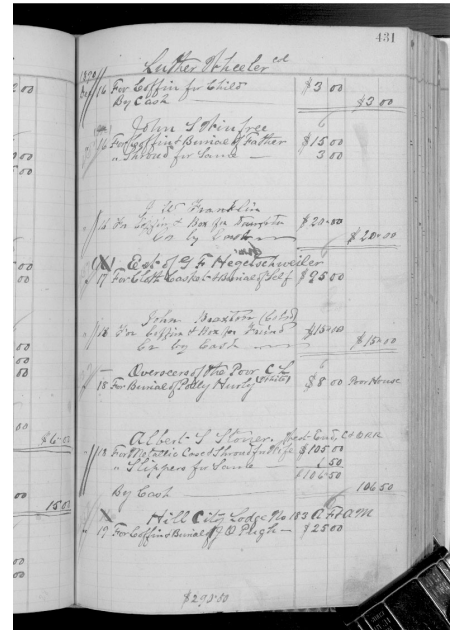 431
Luther Wheeler col
16 For Coffin for Child $3 00
By Cash $3 00
John S Winfree
16 For Coffin & Burial of Father $15 00
" Shroud for Same — 3 00
Franklin
16 For Coffin & Box for Daughter $20.00
Cr by Cash $20.00
Est of G F Hegelschweiler
17 For Cloth Casket & Burial of Self $95 00
John Braxton (Cold)
18 For Coffin & Box for Friend $15.00
Cr by Cash $15.00
Overseers of the Poor C L
18 For Burial of Polly Hurly (White) $8 00 Poor House
Albert S Stoner. West End,
18 For Metallic Case & Shroud for Wife $105 00
" Slippers for Same — 1 50
$106.50
By Cash — 106 50
X Hill City Lodge No 183 A F & A M
19 For Coffin & Burial of J O Pugh — $25 00
$293.50